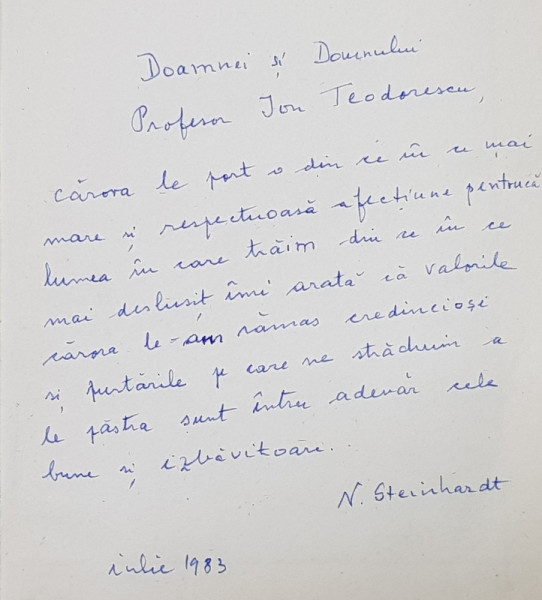 Doamnei și Domnului
Profesor Ion Teodorescu,
cărora le port o din ce în ce mai
mare și respectuoasă afecțiune pentrucă
lumea în care trăim din ce în ce
mai deslușit îmi arată că valorile
cărora le-am rămas credincioși
și purtările pe care ne străduim a
le păstra sunt întru adevăr cele
bune și izbăvitoare..
N. Steinhardt
iulie 1983